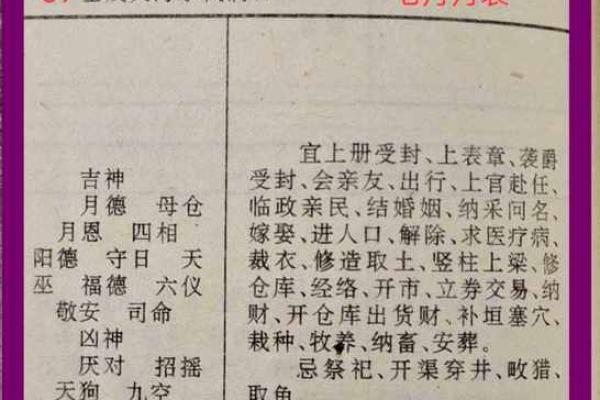 七月月表
吉神
月德 母仓
月恩 四相
阳德 守日 天
巫 福德 六仪
敬安 司命
凶神
厌对 招摇
天狗 九空
宜上册受封、上表章、袭爵
受封、会亲友、出行、上官赴任、
临政亲民、结婚姻、纳采问名、
嫁娶、进人口、解除、求医疗病、
裁衣、修造取土、竖柱上梁、修
仓库、经络、开市、立券交易、纳
财、开仓库出货财、补垣塞穴、
栽种、牧养、纳畜、安葬。
忌祭祀、开渠穿井、畋猎、
取鱼